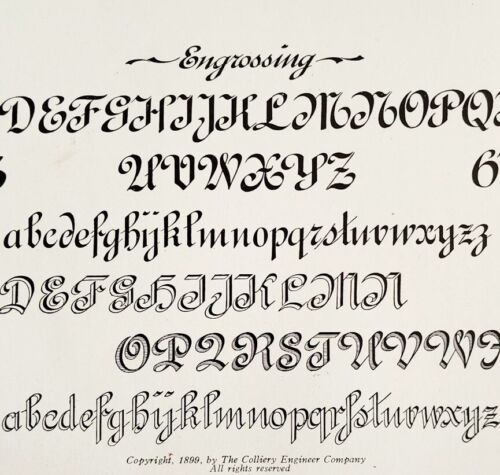 Engrossing
DEFGHIJKLMNOPQ
UVWXYZ 6
abcdefghijklmnopqrstuvwxyz
DEFGHIJKLMN
OPQRSTUVWX
abcdefghijklmnopqrstuvwxyz
Copyright, 1899, by The Colliery Engineer Company
All rights reserved